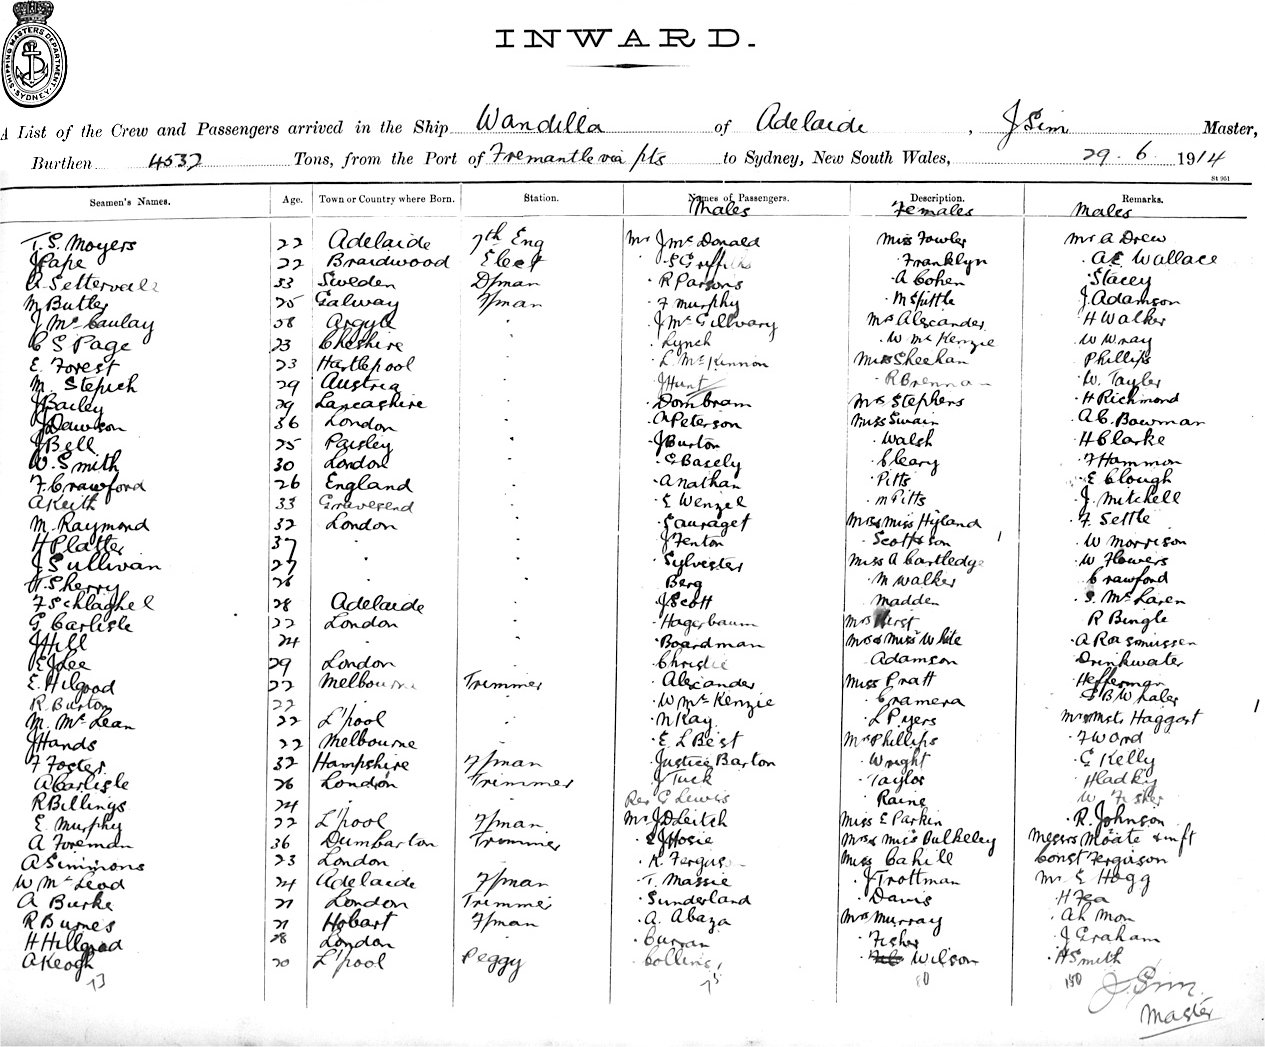 SHIPPING MASTERS DEPARTMENT SYDNEY
INWARD.
A List of the Crew and Passengers arrived in the Ship Wandilla of Adelaide, J Sim Master,
Burthen 4532 Tons, from the Port of Fremantle via pts to Sydney, New South Wales, 29.6.1914
St 951
Seamen's Names. Age. Town or Country where Born. Station. Names of Passengers. Description. Remarks.
Males Females Males
T. S. Moyers 22 Adelaide 7th Eng Mr J McDonald Miss Fowler Mr A Drew
J Pape 22 Braidwood Elect " S Griffiths " Franklyn " A E Wallace
A. Settervall 33 Sweden D/man " R Parsons " A Cohen " Stacey
M Butler 25 Galway F/man " F Murphy " M Spittle " J Adamson
J McCaulay 58 Argyle " " J McGillvary Mrs Alexander " H Walker
C S Page 23 Cheshire " " Lynch " W McKenzie " W Wray
E. Forest 23 Hartlepool " " L McKinnon Miss Sheehan Phillips
M. Stepich 29 Austria " " J Hunt " R Brennan " W. Taylor
J Bailey 29 Lancashire " " Dombram Mrs Stephens " H Richmond
J Dawson 36 London " " A Peterson Miss Swain " A C. Bowman
J Bell 25 Paisley " " J Burton " Walsh " H Clarke
W. Smith 30 London " " G Basely " Cleary " F Hammon
F. Crawford 26 England " " A Nathan " Pitts " E Clough
A Keith 33 Gravesend " " E Wenzel " M Pitts " J. Mitchell
M. Raymond 32 London " " Sauraget Mrs & Miss Hyland " F. Settle
H Platter 37 " " " J Fenton " Scottsson " W Morrison
J Sullivan 27 " " " Sylvester Miss A Cartledge " W Flowers
H. Sherry 26 " " " Berg " M Walker " Crawford
F Schlaghel 28 Adelaide " " J Scott " Madden " S. McLaren
G. Carlisle 22 London " " Hagerbaum Mrs Hurst " R Bingle
J Hill 24 " " " Boardman Mrs & Miss White " A Rasmussen
E J Lee 29 London " " Christie " Adamson " Drinkwater
E. Hilgood 22 Melbourne Trimmer " Alexander Miss Pratt " Hefferman
R. Burton 22 " " " W McKenzie " Cramera " G B Whaler
M. McLean 22 L'pool " " N Kay " L Pyers Mr & Mstr Haggart
J Hands 22 Melbourne " " E L Best Mrs Phillips " F Word
F Foster 32 Hampshire F/man " Justice Barton " Wright " G Kelly
A Carlisle 26 London Trimmer " J Tuck " Taylor " Hadky
R Billings 24 " " Rev G Lewis " Raine " W Fisher
E. Murphy 22 L'pool F/man Mr J D Leitch Miss E Parkin " R. Johnson
A Foreman 36 Dumbarton Trimmer " E J Hosie Mrs & Miss Bulkeley Messrs Moate &
A Simmons 23 London " " R. Fergus Miss Cahill Const Ferguson
W McLeod 24 Adelaide F/man " T. Massie " J Trottman Mr E Hogg
A Burke 21 London Trimmer " Sunderland " Davis " H Fea
R Burnes 21 Hobart F/man " A. Abaza Mrs Murray " Ah Mon
H Hillgrad 28 London " " Curran " Fisher " J Graham
A Keogh 20 L'pool Peggy " Collins " Wilson " H Smith
73 75 80 150
J. Sim
Master